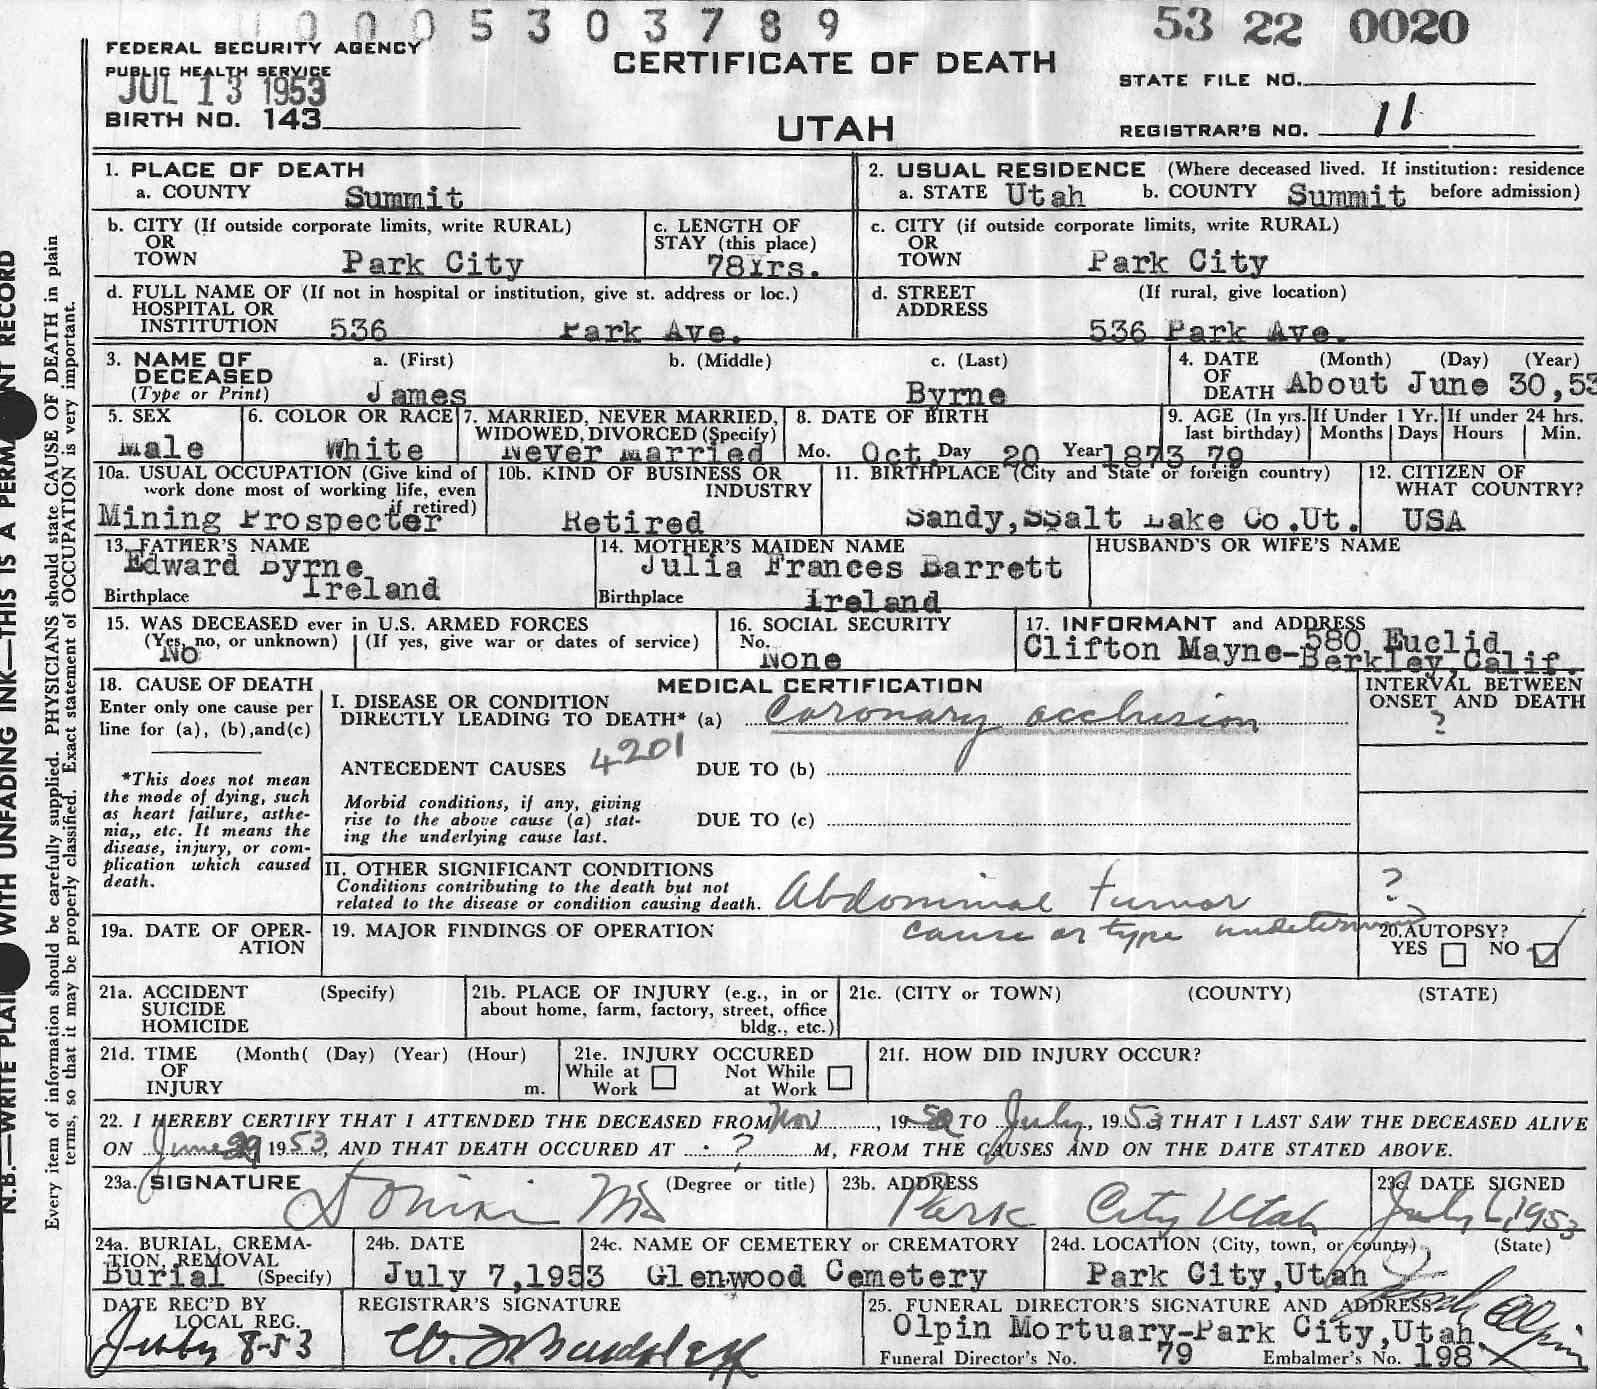 00005303789
53 22 0020
FEDERAL SECURITY AGENCY
PUBLIC HEALTH SERVICE
JUL 13 1953
BIRTH NO. 143
CERTIFICATE OF DEATH
UTAH
STATE FILE NO.
REGISTRAR'S NO. 11
1. PLACE OF DEATH
a. COUNTY Summit
2. USUAL RESIDENCE (Where deceased lived. If institution: residence before admission)
a. STATE Utah b. COUNTY Summit
b. CITY (If outside corporate limits, write RURAL)
OR
TOWN Park City
c. LENGTH OF
STAY (this place)
78Yrs.
c. CITY (if outside corporate limits, write RURAL)
OR
TOWN Park City
d. FULL NAME OF (If not in hospital or institution, give st. address or loc.)
HOSPITAL OR
INSTITUTION 536 Park Ave.
d. STREET (If rural, give location)
ADDRESS
536 Park Ave.
3. NAME OF
DECEASED
(Type or Print)
a. (First) b. (Middle) c. (Last)
James Byrne
4. DATE (Month) (Day) (Year)
OF
DEATH About June 30,53
5. SEX
Male
6. COLOR OR RACE
White
7. MARRIED, NEVER MARRIED,
WIDOWED, DIVORCED (Specify)
Never married
8. DATE OF BIRTH
Mo. Oct. Day 20 Year 1873
9. AGE (In yrs.
last birthday)
79
If Under 1 Yr.
Months Days
If under 24 hrs.
Hours Min.
10a. USUAL OCCUPATION (Give kind of
work done most of working life, even
if retired)
Mining Prospecter
10b. KIND OF BUSINESS OR
INDUSTRY
Retired
11. BIRTHPLACE (City and State or foreign country)
Sandy,SSalt Lake Co.Ut.
12. CITIZEN OF
WHAT COUNTRY?
USA
13. FATHER'S NAME
Edward Byrne
Birthplace Ireland
14. MOTHER'S MAIDEN NAME
Julia Frances Barrett
Birthplace Ireland
HUSBAND'S OR WIFE'S NAME
15. WAS DECEASED ever in U.S. ARMED FORCES
(Yes, no, or unknown) (If yes, give war or dates of service)
No
16. SOCIAL SECURITY
No.
None
17. INFORMANT and ADDRESS
Clifton Mayne-580 Euclid
Berkley,Calif.
18. CAUSE OF DEATH
Enter only one cause per
line for (a), (b),and(c)
*This does not mean
the mode of dying, such
as heart failure, asthe-
nia,, etc. It means the
disease, injury, or com-
plication which caused
death.
MEDICAL CERTIFICATION
I. DISEASE OR CONDITION
DIRECTLY LEADING TO DEATH* (a) Coronary occlusion
4201
ANTECEDENT CAUSES DUE TO (b)
Morbid conditions, if any, giving
rise to the above cause (a) stat-
ing the underlying cause last.
DUE TO (c)
INTERVAL BETWEEN
ONSET AND DEATH
?
II. OTHER SIGNIFICANT CONDITIONS
Conditions contributing to the death but not
related to the disease or condition causing death.
Abdominal Tumor ?
cause or type undetermined
19a. DATE OF OPER-
ATION
19. MAJOR FINDINGS OF OPERATION
20. AUTOPSY?
YES NO
21a. ACCIDENT (Specify)
SUICIDE
HOMICIDE
21b. PLACE OF INJURY (e.g., in or
about home, farm, factory, street, office
bldg., etc.)
21c. (CITY or TOWN) (COUNTY) (STATE)
21d. TIME (Month( (Day) (Year) (Hour)
OF
INJURY m.
21e. INJURY OCCURED
While at Work Not While at Work
21f. HOW DID INJURY OCCUR?
22. I HEREBY CERTIFY THAT I ATTENDED THE DECEASED FROM Nov, 1952 TO July, 1953 THAT I LAST SAW THE DECEASED ALIVE
ON June 29 1953, AND THAT DEATH OCCURED AT ? M, FROM THE CAUSES AND ON THE DATE STATED ABOVE.
23a. SIGNATURE (Degree or title)
MD
23b. ADDRESS
Park City Utah
23c. DATE SIGNED
July 6, 1953
24a. BURIAL, CREMA-
TION, REMOVAL
Burial (Specify)
24b. DATE
July 7,1953
24c. NAME OF CEMETERY or CREMATORY
Glenwood Cemetery
24d. LOCATION (City, town, or county) (State)
Park City,Utah
DATE REC'D BY
LOCAL REG.
July 8-53
REGISTRAR'S SIGNATURE
25. FUNERAL DIRECTOR'S SIGNATURE AND ADDRESS
Olpin Mortuary-Park City,Utah
Funeral Director's No. 79 Embalmer's No. 198
N.B.—WRITE PLAI WITH UNFADING INK—THIS IS A PERMA NT RECORD
Every item of information should be carefully supplied. PHYSICIANS should state CAUSE OF DEATH in plain
terms, so that it may be properly classified. Exact statement of OCCUPATION is very important.